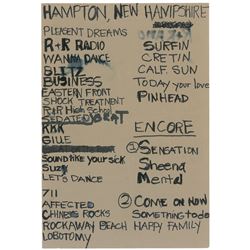 HAMPTON, NEW HAMPSHIRE
PLEASENT DREAMS
R+R RADIO
WANNA DANCE
BLITZ
BUSINESS
EASTERN FRONT
SHOCK TREATMENT
R+R High School
SEDATED BEAT
KKK
GILE
Sound like your sick
Suzy
LET'S DANCE
711
AFFECTED
CHINESE ROCKS
ROCKAWAY BEACH
LOBOTOMY
SURFIN
CRETIN
CALF. SUN
TODAY your love
PINHEAD
ENCORE
① SENSATION
Sheena
Mental
② COME ON NOW
Something to do
HAPPY FAMILY